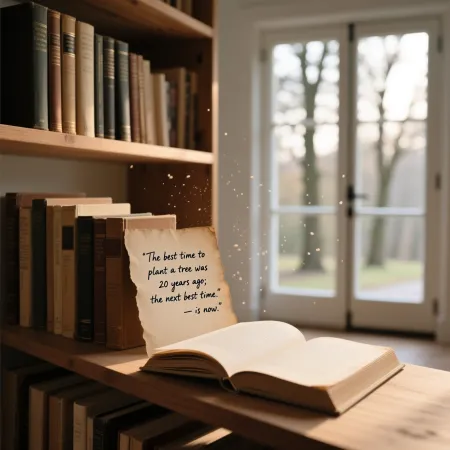 "The best time to
plant a tree was
20 years ago;
the next best time."
— is now."